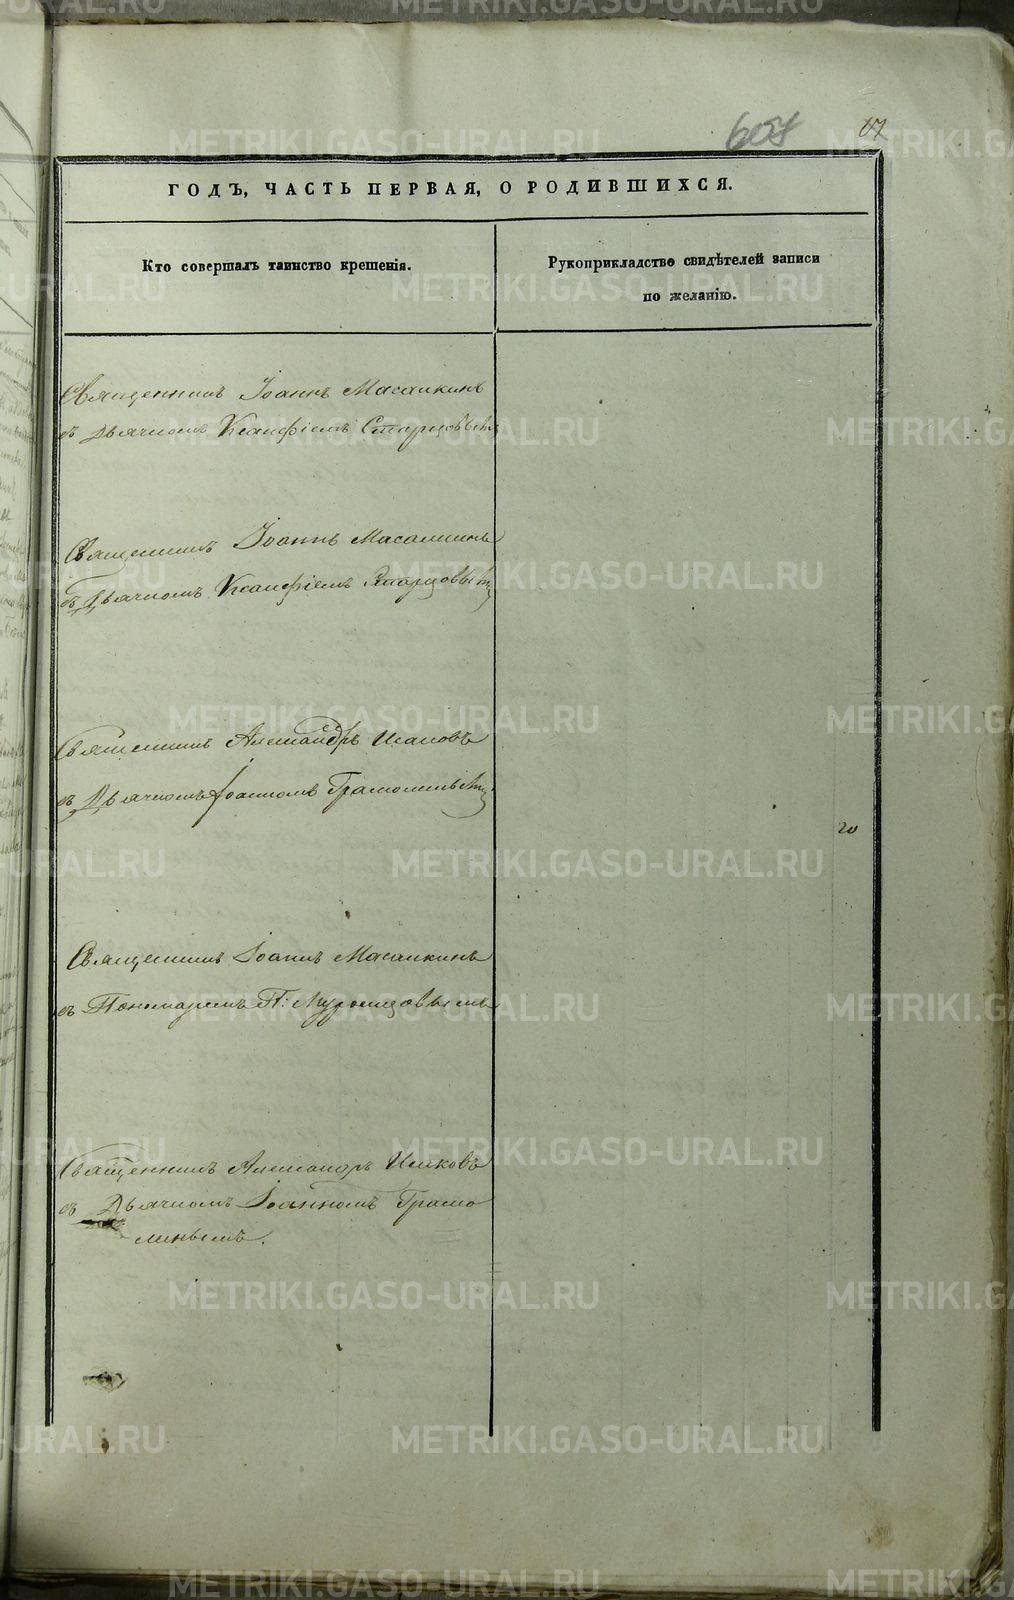 607
67
ГОДЪ, ЧАСТЬ ПЕРВАЯ, О РОДИВШИХСЯ.
Кто совершалъ таинство крещенія.
Рукоприкладство свидѣтелей записи
по желанію.
Священникъ Іоаннъ Масалкинъ
съ Дьячкомъ Ксанфіемъ Старцовымъ
Священникъ Іоаннъ Масалкинъ
съ Дьячкомъ Ксанфіемъ Старцовымъ
Священникъ Александръ Исаковъ
съ Дьячкомъ Іоанномъ Грамолинымъ
20
Священникъ Іоаннъ Масалкинъ
съ Пономаремъ П: Муромцовымъ
Священникъ Александръ Исаковъ
съ Дьячкомъ Іоанномъ Грамо
линымъ.
METRIKI.GASO-URAL.RU